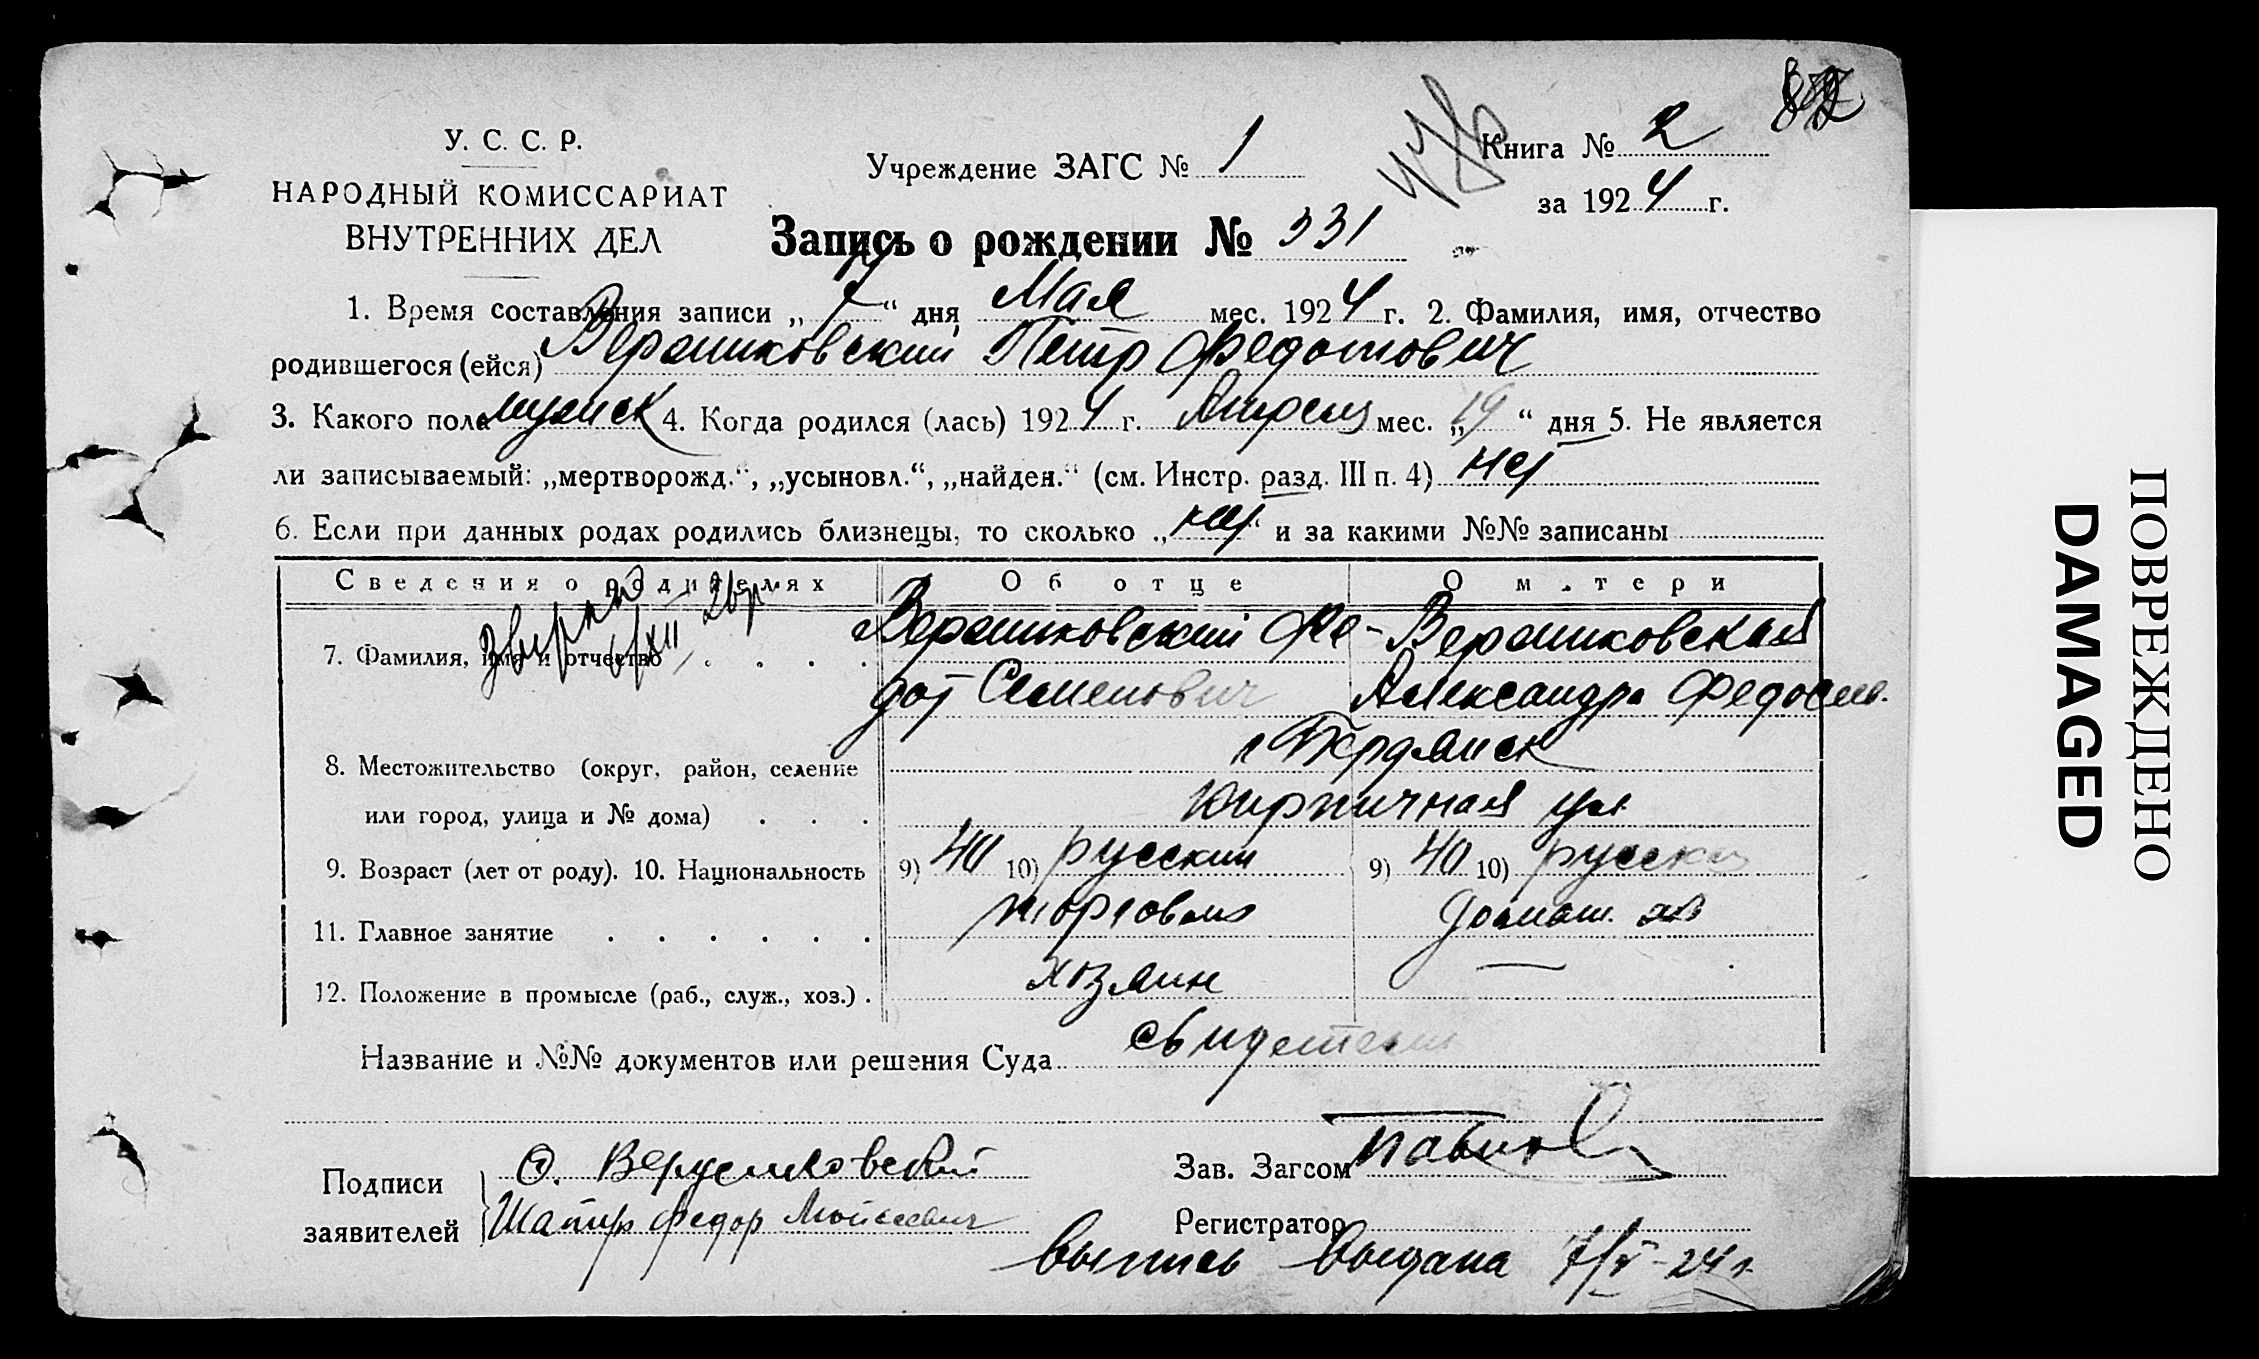 У. С. С. Р.
НАРОДНЫЙ КОМИССАРИАТ
ВНУТРЕННИХ ДЕЛ
Учреждение ЗАГС № 1
Книга № 2
за 1924 г.
Запись о рождении № 331
1. Время составления записи „7“ дня Мая мес. 1924 г. 2. Фамилия, имя, отчество
родившегося (ейся) Петр Федотович
3. Какого пола мужск 4. Когда родился (лась) 1924 г. Апреля мес. „19“ дня 5. Не является
ли записываемый: „мертворожд.“, „усыновл.“, „найден.“ (см. Инстр. разд. III п. 4) нет
6. Если при данных родах родились близнецы, то сколько „нет“ и за какими №№ записаны
Сведения о родителях Об отце О м.тери
7. Фамилия, имя и отчество Фе-
дот Семенович Александра
8. Местожительство (округ, район, селение г Бердянск
или город, улица и № дома) Кирпичная ул
9. Возраст (лет от роду). 10. Национальность 9) 40 10) русский 9) 40 10) русская
11. Главное занятие торговля домаш. хоз
12. Положение в промысле (раб., служ., хоз.) хозяин —
Название и №№ документов или решения Суда свидетели
Подписи заявителей
Ф. Верушковский
Шапир Федор Моисеевич
Зав. Загсом
Регистратор
выпись выдана 7/V-24 г.
ПОВРЕЖДЕНО
DAMAGED